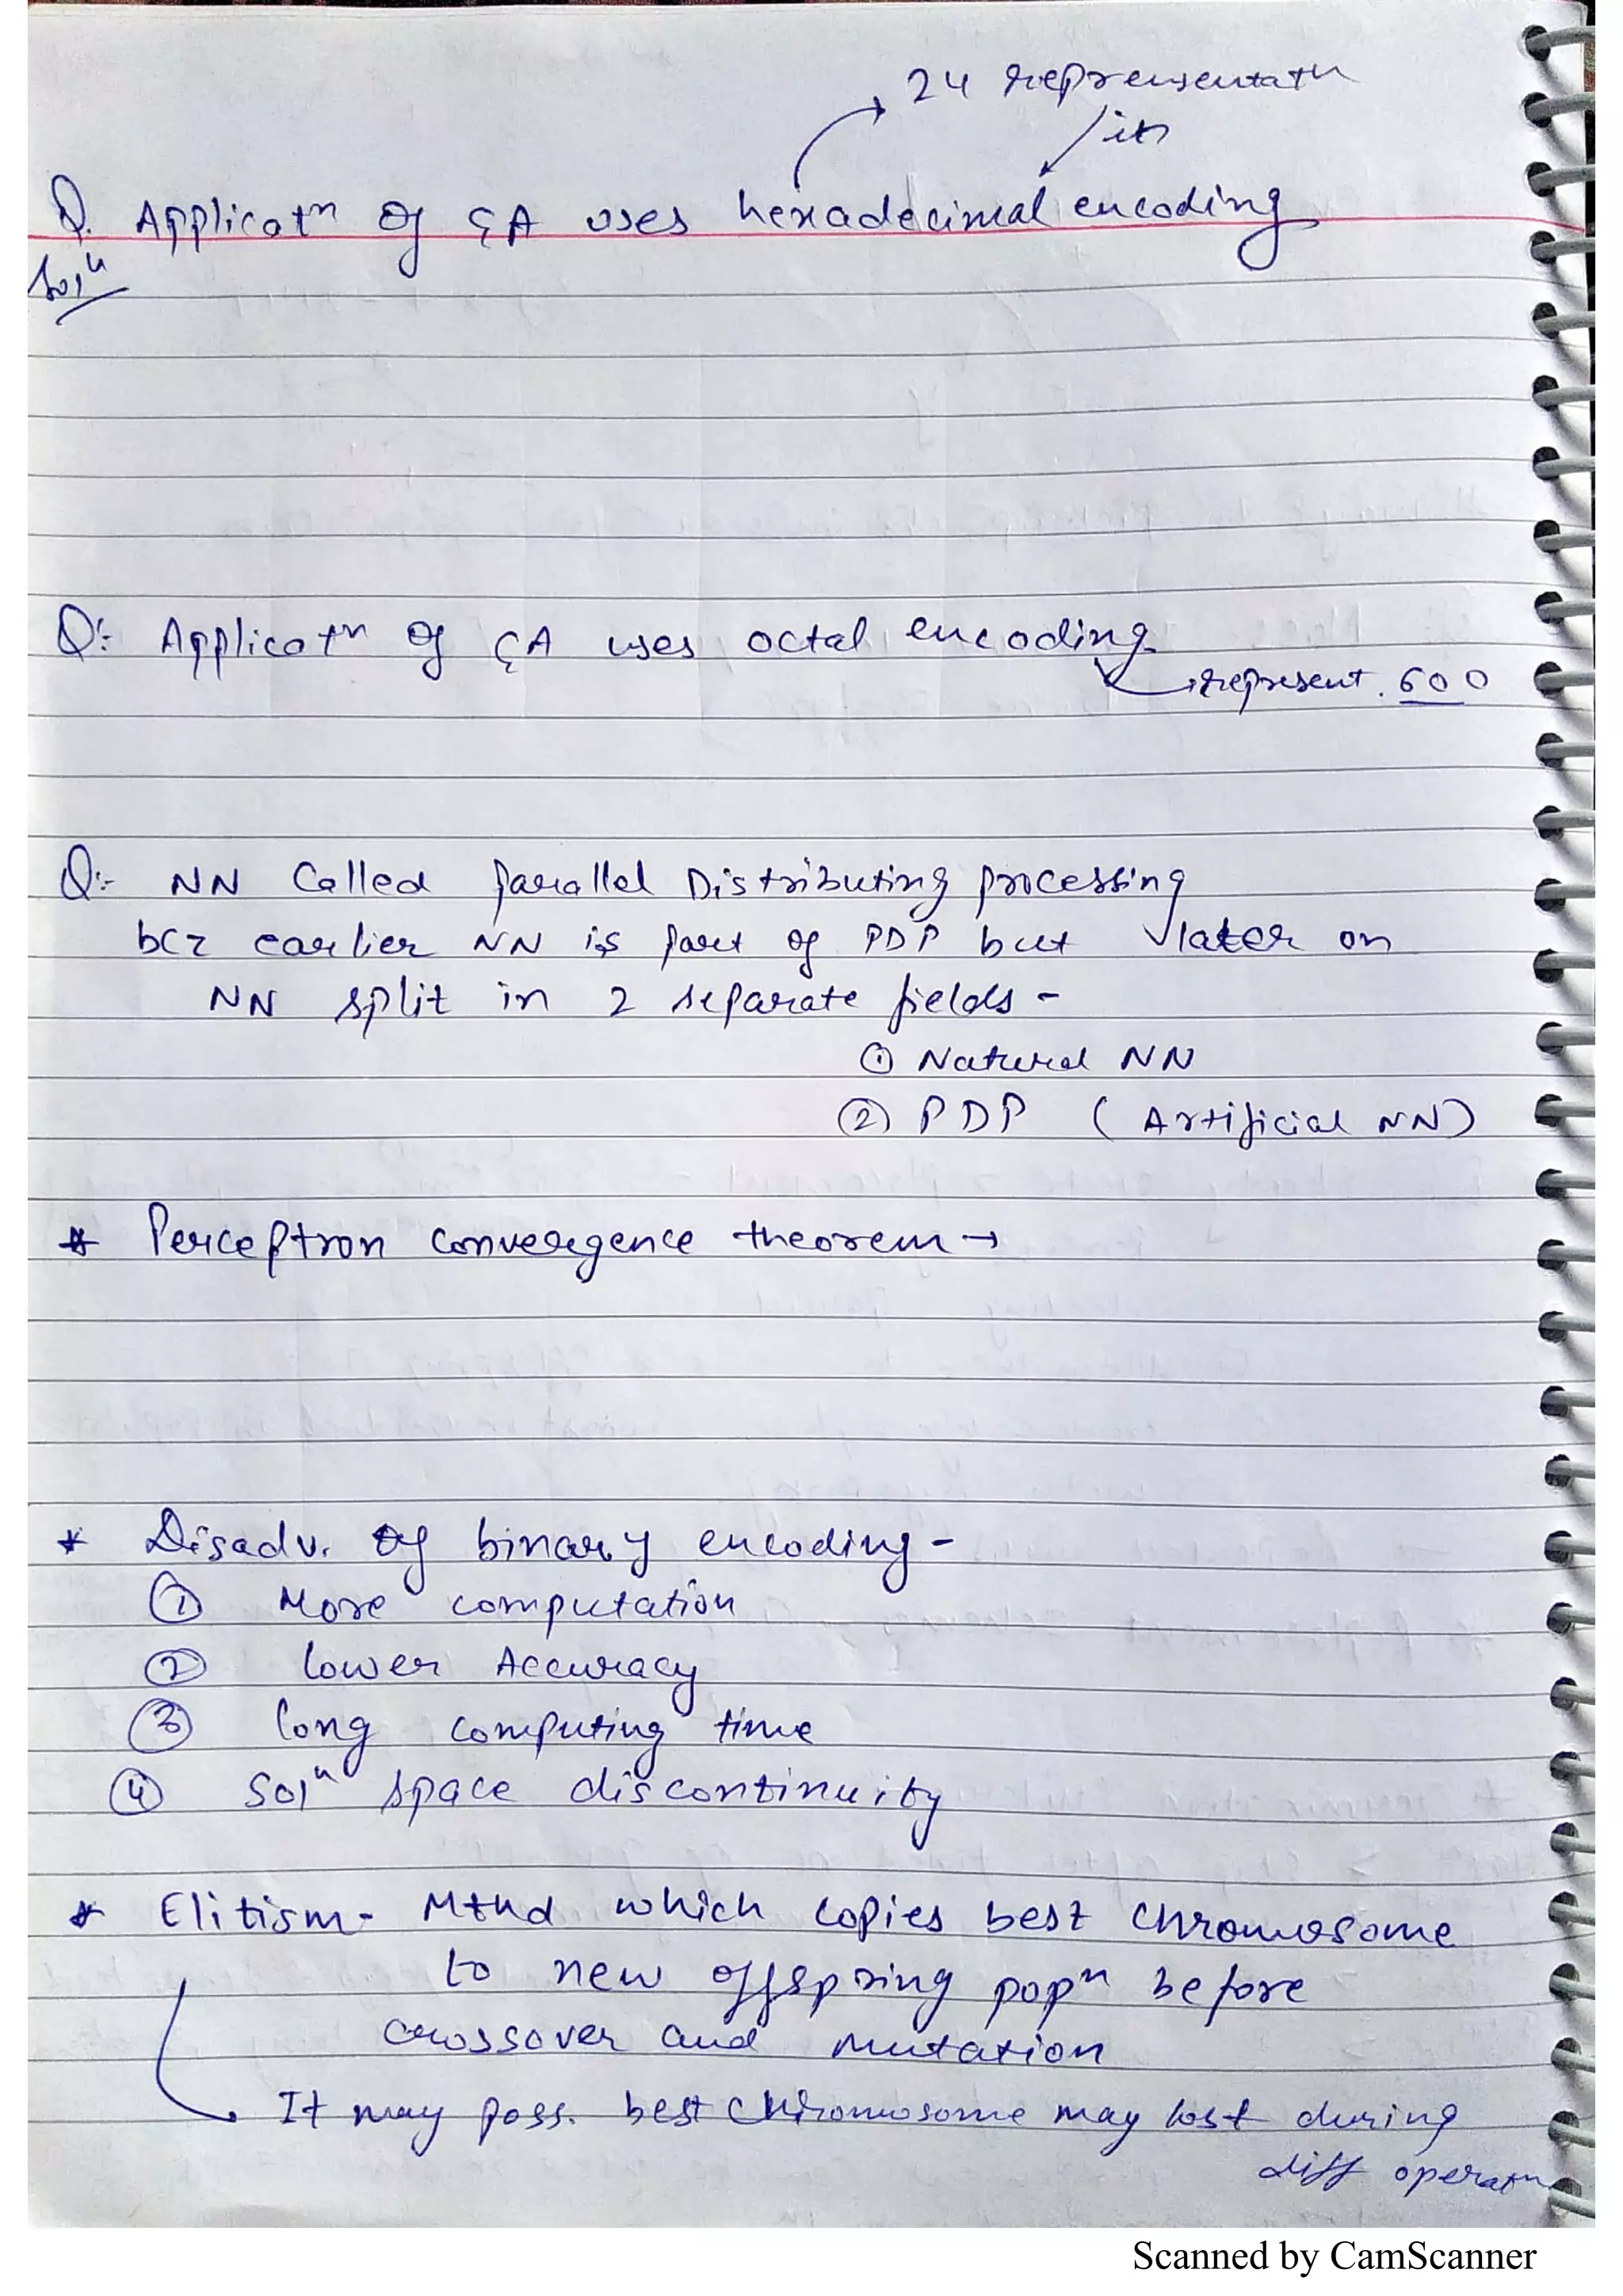 24 representatn
in
Q. Applicatn of GA uses hexadecimal encoding
Soln
Q:- Applicatn of GA uses octal encoding
represent. 600
Q:- NN Called parallel Distributing processing
bcz earlier NN is part of PDP but later on
NN split in 2 separate fields -
① Natural NN
② PDP (Artificial NN)
* Perceptron convergence theorem →
* Disadv. of binary encoding -
① More computation
② lower Accuracy
③ long computing time
④ Soln space discontinuity
* Elitism - Mthd which copies best chromosome
to new offspring popn before
crossover and mutation
It may poss. best chromosome may lost during
diff operatn
Scanned by CamScanner